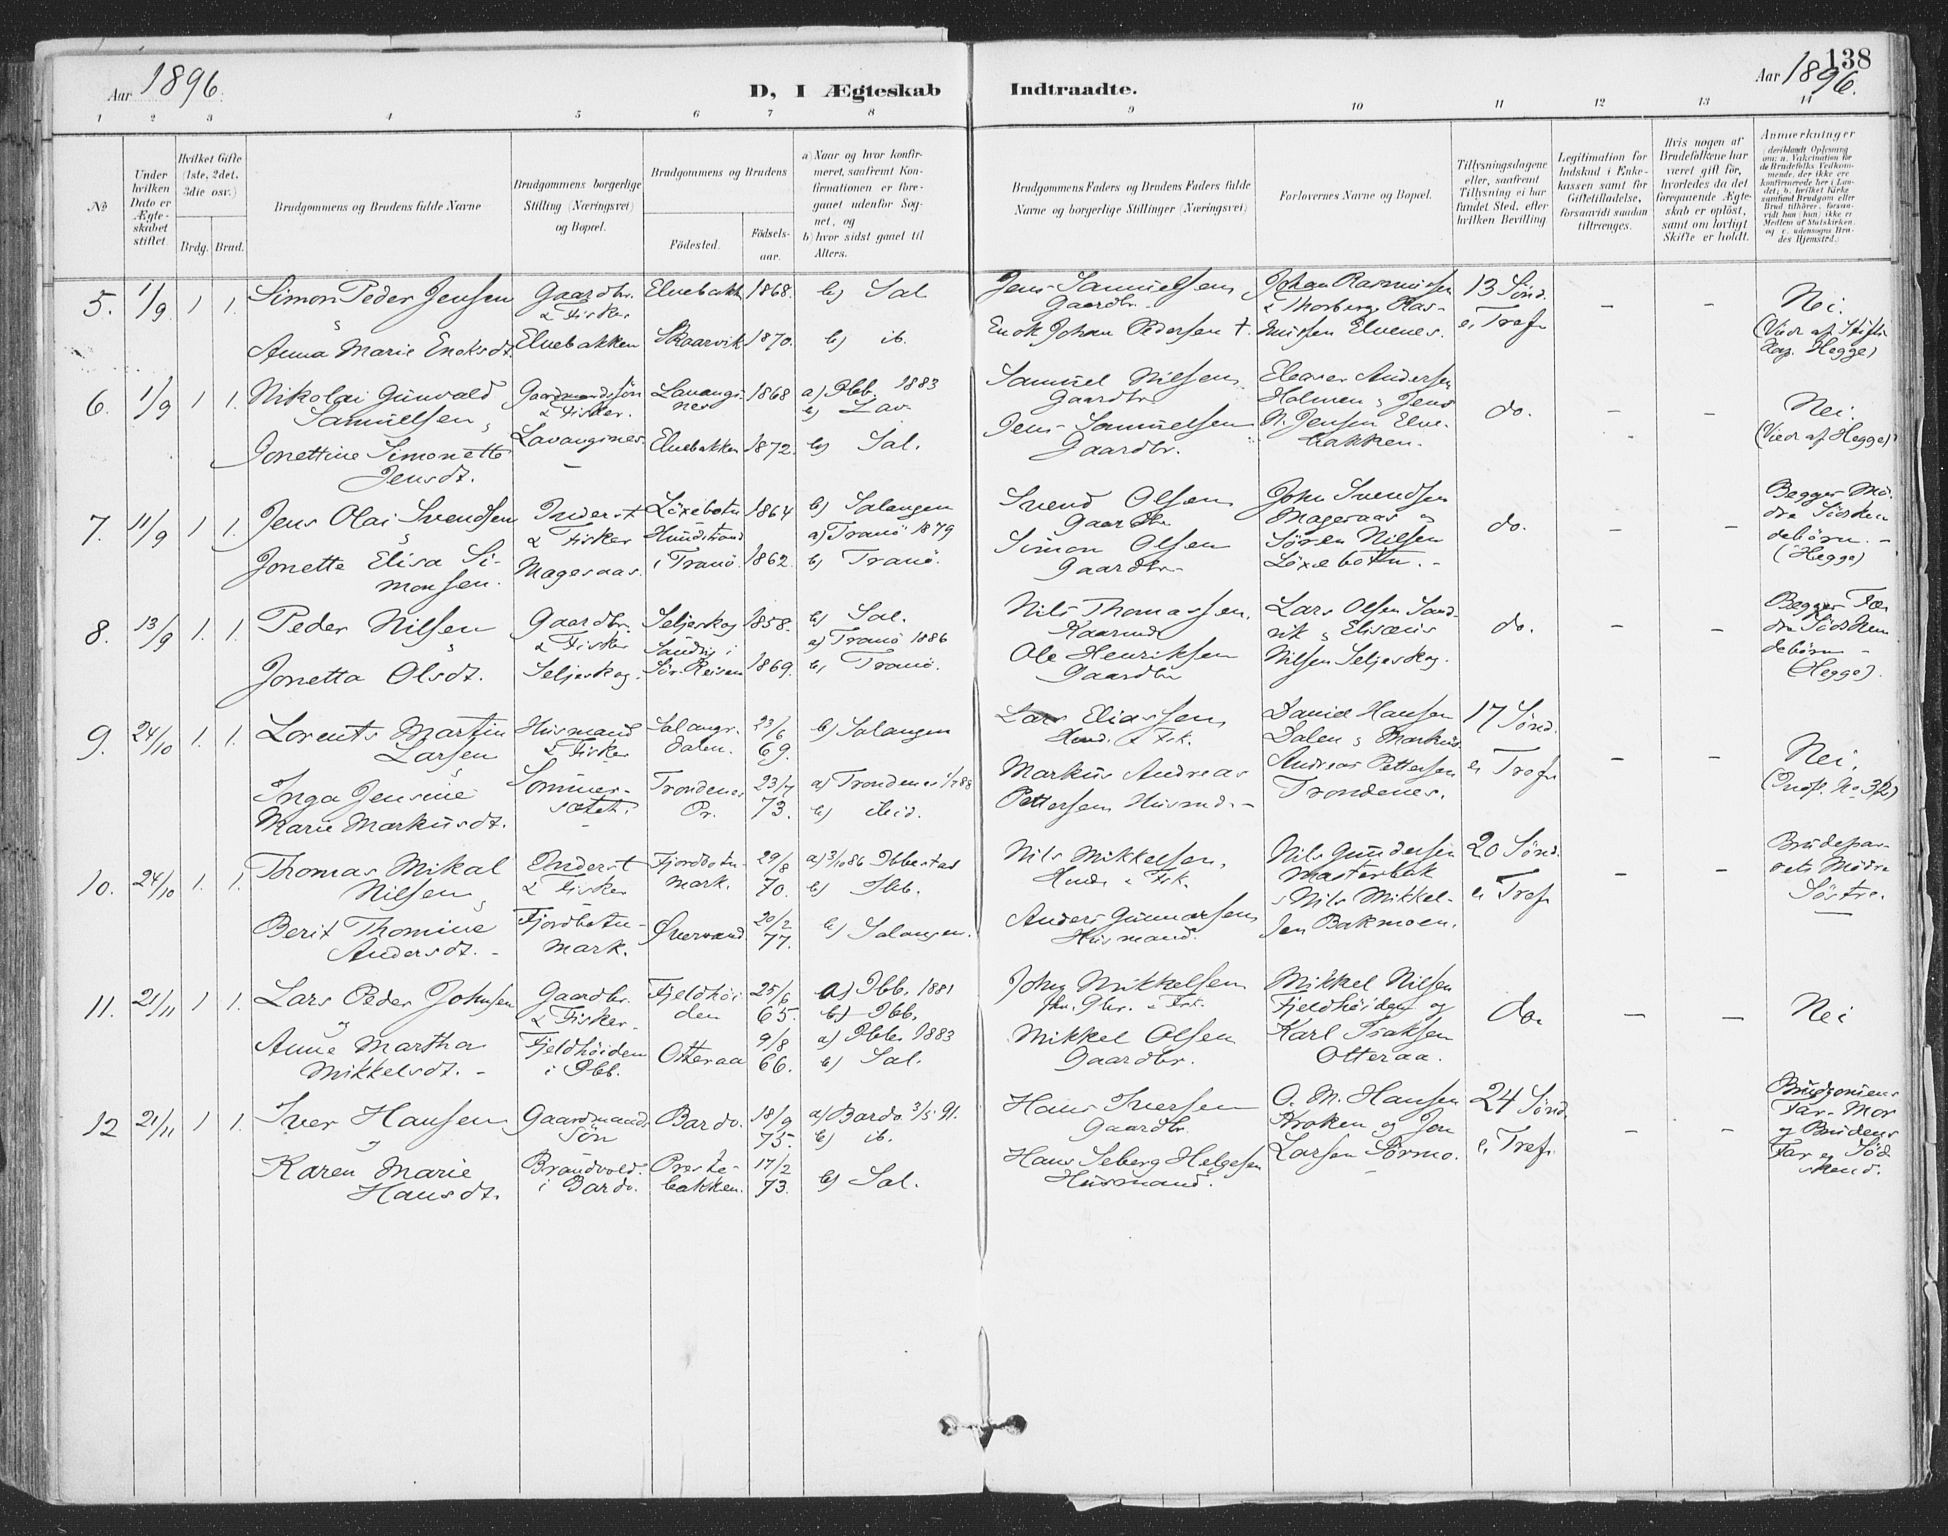 Aar 1896.
D, I Ægteskab Indtraadte.
Aar 1896.
138
1 2 3 4 5 6 7 8 9 10 11 12 13 14
No
Under hvilken Dato er Ægteskabet stiftet.
Hvilket Gifte (1ste, 2det, 3die osv.)
Brdg. Brud.
Brudgommens og Brudens fulde Navne
Brudgommens borgerlige Stilling (Næringsvei) og Bopæl.
Brudgommens og Brudens
Födested.
Födselsaar.
a) Naar og hvor konfirmeret, saafremt Konfirmationen er foregaaet udenfor Sognet, og
b) hvor sidst gaaet til Alters.
Brudgommens Faders og Brudens Faders fulde Navne og borgerlige Stillinger (Næringsvei)
Forlovernes Navne og Bopæl.
Tillysningsdagene eller, saafremt Tillysning ei har fundet Sted, efter hvilken Bevilling
Legitimation for Indskud i Enkekassen samt for Giftetilladelse, forsaavidt saadan tiltrænges.
Hvis nogen af Brudefolkene har været gift för, hvorledes da det foregaaende Ægteskab er oplöst, samt om lovligt Skifte er holdt.
Anmærkninger
5. 1/9 1 1. Simon Peder Jensen
Anna Marie Enoksdt.
Gaardbr. & Fisker
Elvebakken
Elvebakk 1868.
Skaarvik 1870.
b) Sal
b) ib.
Jens Samuelsen
Gaardbr.
Enok Johan Pedersen †
Johan Rasmussen
& Thorberg Rasmussen Elvenes.
13 Sønd. e Tref.
– –
Nei.
(Viedt af Stifts Kap. Hegge)
6. 1/9 1 1. Nikolai Gunvald Samuelsen,
Jonettine Simonette Jensdt.
Gaardmandssön & Fisker.
Lavangsnes.
Lavangsnes 1868
Elvebakken 1872.
a) Ibb. 1883
b) Lav
b) Sal.
Samuel Nilsen
Gaardbr
Jens Samuelsen
Gaardbr.
Eleaser Andersen
Holmen, Jens
N. Jensen Elvebakken.
do.
– –
Nei.
(Viedt af Hegge)
7. 11/9 1 1. Jens Olai Svendsen
Jonette Elisa Simonsen.
Inderst & Fisker
Magesaas.
Löxebotn 1864
Hundstrand i Tranö. 1862.
b) Salangen
a) Tranö 1879
b) Tranö.
Svend Olsen
Gaardbr
Simon Olsen
Gaardbr
John Svendsen
Magesaas og
Sören Nilsen
Löxebotn. –
do.
– –
Begges Mödre Södskendebörn. –
(Hegge)
8. 13/9 1. 1. Peder Nilsen
Jonetta Olsdt.
Gaardbr. & Fisker
Seljeskog.
Seljeskog 1858.
Sandvig i Sör-Reisen 1869.
b) Sal.
a) Tranö 1886
b) Tranö.
Nils Thomassen,
Kaarmd
Ole Henriksen
Gaardbr
Lars Olsen Sandvik, Elisæus
Nilsen Seljeskog.
do.
– –
Begges Fædre Södskendebörn –
(Hegge).
9. 24/10 1. 1. Lorents Martin Larsen
Inga Jensine Marie Markusdt.
Husmand & Fisker
Sommersætet.
Salangsdalen. 23/6 69.
Trondenes Pr. 23/7 73.
b) Salangen
a) Trondenes 1/7 88
b) ibid.
Lars Eliassen,
Husmd. & Fisk.
Markus Andreas
Pettersen Husmd. –
David Hansen
Dalen, Markus
Andreas Pettersen
Trondenes.
17 Sønd. e Tref.
– –
Nei.
10. 24/10 1. 1. Thomas Mikal Nilsen,
Berit Thomine Andersdt. –
Inderst & Fisker
Fjordbotnmark.
Fjordbotnmark. 29/8 70.
Øvervand 20/2 77.
a) 3/10 86 Ibbestad
b) Ibb.
b) Salangen.
Nils Mikkelsen,
Husm. & Fisk.
Anders Gunnarsen,
Husmand.
Nils Gundersen
Masterbak
, Nils Mikkelsen Bakmoen.
20 Sønd. e Tref
– –
Brudeparrets Mödre Söstre.
11. 21/11 1 1. Lars Peder Johnsen
og
Anne Martha Mikkelsdt. –
Gaardbr. & Fisker.
Fjeldhöiden i Ibb.
Fjeldhöiden 25/6 65.
Otteraa 9/8 66.
a) Ibb, 1881
b) Ibb,
a) Ibb. 1883
b) Sal.
John Mikkelsen
Mikkel Olsen
Gaardbr.
Mikkel Nilsen
Fjeldhöiden og
Karl Isaksen
Otteraa.
do.
– –
Nei
12 21/11 1 1. Iver Hansen
Karen Marie Hansdt.
Gaardmandssön
Brandvold i Bardo.
Bardo. 18/9 75.
Prestebakken. 17/2 73.
a) Bardo 3/5 91.
b) ib.
b) Sal.
Hans Iversen
Gaardbr.
Hans Seberg Helgesen
Husmand.
O. M. Hansen
Kroken og Jon
Larsen Sörmo.
24 Sønd. e Tref.
– –
Brudgomens Far-Mor og Brudens Far er Södskend.